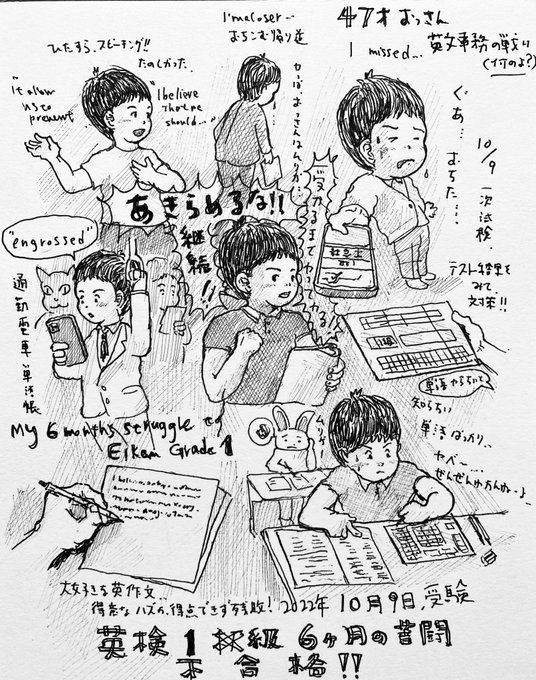 I'm a Loser...
おちこむ帰り道
47才おっさん
I missed...
英文事務の戦い
(何のよ?)
ひたすら、スピーチング!!
たのしかった...
"It allow us to prevent"
"I believe that we should..."
やっぱおっさんはムリか...
ぐぁ...おちた...
10/9 一次試験.
テスト結果をみて、対策!!
あきらめるな!!
継続!!
受かるまでやってやる!
"engrossed"
通勤電車 単語帳
My 6 months struggle to
Eiken Grade 1
単語からやって
知らない
単語ばっかり..
ヤベー...
ぜんぜんわかんねーよ..
大好きな英作文..
得意なハズの、得点できず残敗!
2022年 10月9日、受験
英検1級 6ヶ月の苦闘
不合格!!